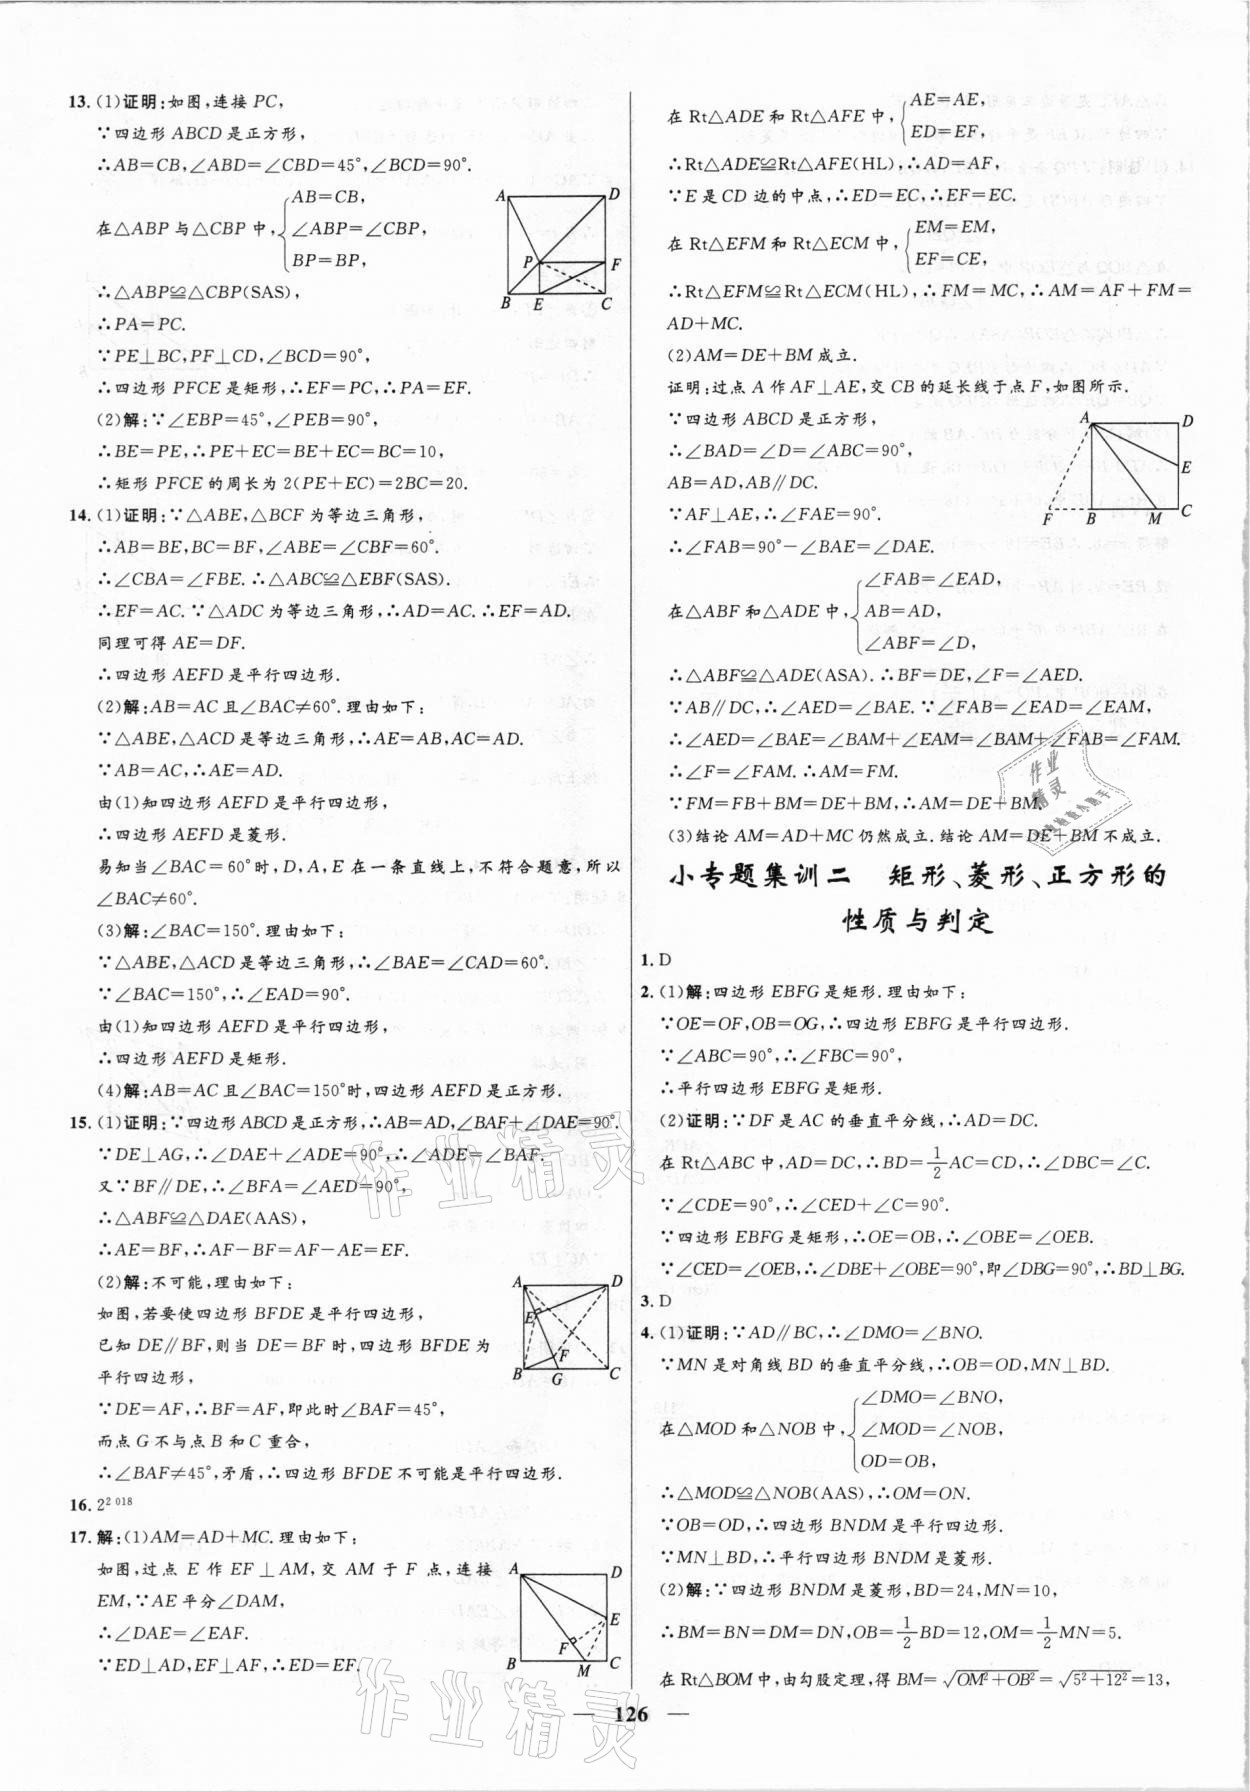 13. (1)证明:如图,连接 PC,
∵四边形 ABCD 是正方形,
∴AB=CB,∠ABD=∠CBD=45°,∠BCD=90°.
AB=CB,
在△ABP 与△CBP 中,{∠ABP=∠CBP,
BP=BP,
∴△ABP≌△CBP(SAS),
∴PA=PC.
∵PE⊥BC,PF⊥CD,∠BCD=90°,
∴四边形 PFCE 是矩形,∴EF=PC,∴PA=EF.
(2)解:∵∠EBP=45°,∠PEB=90°,
∴BE=PE,∴PE+EC=BE+EC=BC=10,
∴矩形 PFCE 的周长为 2(PE+EC)=2BC=20.
A D
P F
B E C
14. (1)证明:∵△ABE,△BCF 为等边三角形,
∴AB=BE,BC=BF,∠ABE=∠CBF=60°.
∴∠CBA=∠FBE.∴△ABC≌△EBF(SAS).
∴EF=AC.∵△ADC 为等边三角形,∴AD=AC.∴EF=AD.
同理可得 AE=DF.
∴四边形 AEFD 是平行四边形.
(2)解:AB=AC 且∠BAC≠60°.理由如下:
∵△ABE,△ACD 是等边三角形,∴AE=AB,AC=AD.
∵AB=AC,∴AE=AD.
由(1)知四边形 AEFD 是平行四边形,
∴四边形 AEFD 是菱形.
易知当∠BAC=60°时,D,A,E 在一条直线上,不符合题意,所以
∠BAC≠60°.
(3)解:∠BAC=150°.理由如下:
∵△ABE,△ACD 是等边三角形,∴∠BAE=∠CAD=60°.
∵∠BAC=150°,∴∠EAD=90°.
由(1)知四边形 AEFD 是平行四边形,
∴四边形 AEFD 是矩形.
(4)解:AB=AC 且∠BAC=150°时,四边形 AEFD 是正方形.
15. (1)证明:∵四边形 ABCD 是正方形,∴AB=AD,∠BAF+∠DAE=90°.
∵DE⊥AG,∴∠DAE+∠ADE=90°,∴∠ADE=∠BAF.
又∵BF∥DE,∴∠BFA=∠AED=90°,
∴△ABF≌△DAE(AAS),
∴AE=BF,∴AF-BF=AF-AE=EF.
(2)解:不可能,理由如下:
如图,若要使四边形 BFDE 是平行四边形,
已知 DE∥BF,则当 DE=BF 时,四边形 BFDE 为
平行四边形,
∵DE=AF,∴BF=AF,即此时∠BAF=45°,
而点 G 不与点 B 和 C 重合,
∴∠BAF≠45°,矛盾,∴四边形 BFDE 不可能是平行四边形.
A D
E
F
B G C
16. 2^(2 018)
17. 解:(1)AM=AD+MC.理由如下:
如图,过点 E 作 EF⊥AM,交 AM 于 F 点,连接
EM,∵AE 平分∠DAM,
∴∠DAE=∠EAF.
∵ED⊥AD,EF⊥AF,∴ED=EF.
A D
E
F
B M C
AE=AE,
在 Rt△ADE 和 Rt△AFE 中,{
ED=EF,
∴Rt△ADE≌Rt△AFE(HL),∴AD=AF,
∵E 是 CD 边的中点,∴ED=EC,∴EF=EC.
EM=EM,
在 Rt△EFM 和 Rt△ECM 中,{
EF=CE,
∴Rt△EFM≌Rt△ECM(HL),∴FM=MC,∴AM=AF+FM=
AD+MC.
(2)AM=DE+BM 成立.
证明:过点 A 作 AF⊥AE,交 CB 的延长线于点 F,如图所示.
∵四边形 ABCD 是正方形,
∴∠BAD=∠D=∠ABC=90°,
AB=AD,AB∥DC.
∵AF⊥AE,∴∠FAE=90°.
∴∠FAB=90°-∠BAE=∠DAE.
∠FAB=∠EAD,
在△ABF 和△ADE 中,{AB=AD,
∠ABF=∠D,
A D
E
F B M C
∴△ABF≌△ADE(ASA).∴BF=DE,∠F=∠AED.
∵AB∥DC,∴∠AED=∠BAE.∵∠FAB=∠EAD=∠EAM,
∴∠AED=∠BAE=∠BAM+∠EAM=∠BAM+∠FAB=∠FAM.
∴∠F=∠FAM.∴AM=FM.
∵FM=FB+BM=DE+BM,∴AM=DE+BM.
(3)结论 AM=AD+MC 仍然成立.结论 AM=DE+BM 不成立.
小专题集训二 矩形、菱形、正方形的
性质与判定
1. D
2. (1)解:四边形 EBFG 是矩形.理由如下:
∵OE=OF,OB=OG,∴四边形 EBFG 是平行四边形.
∵∠ABC=90°,∴∠FBC=90°,
∴平行四边形 EBFG 是矩形.
(2)证明:∵DF 是 AC 的垂直平分线,∴AD=DC.
在 Rt△ABC 中,AD=DC,∴BD=1/2AC=CD,∴∠DBC=∠C.
∵∠CDE=90°,∴∠CED+∠C=90°.
∵四边形 EBFG 是矩形,∴OE=OB,∴∠OBE=∠OEB.
∵∠CED=∠OEB,∴∠DBE+∠OBE=90°,即∠DBG=90°,∴BD⊥BG.
3. D
4. (1)证明:∵AD∥BC,∴∠DMO=∠BNO.
∵MN 是对角线 BD 的垂直平分线,∴OB=OD,MN⊥BD.
∠DMO=∠BNO,
在△MOD 和△NOB 中,{∠MOD=∠NOB,
OD=OB,
∴△MOD≌△NOB(AAS),∴OM=ON.
∵OB=OD,∴四边形 BNDM 是平行四边形.
∵MN⊥BD,∴平行四边形 BNDM 是菱形.
(2)解:∵四边形 BNDM 是菱形,BD=24,MN=10,
∴BM=BN=DM=DN,OB=1/2BD=12,OM=1/2MN=5.
在 Rt△BOM 中,由勾股定理,得 BM=√(OM²+OB²)=√(5²+12²)=13,
— 126 —
作业精灵
作业精灵
作业
精灵